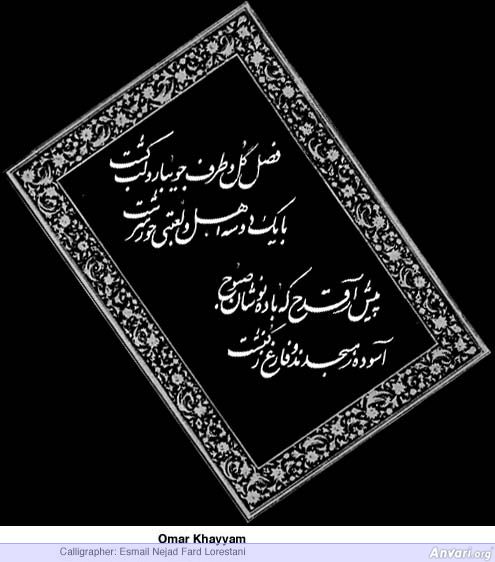 فصل گل و طرف جویبار و لب کشت
با یک دو سه اهل و لعبتی حور سرشت
پیش آر قدح که باده نوشان صبوح
آسوده ز مسجدند و فارغ ز کنشت
Omar Khayyam
Calligrapher: Esmail Nejad Fard Lorestani
Anvari.org